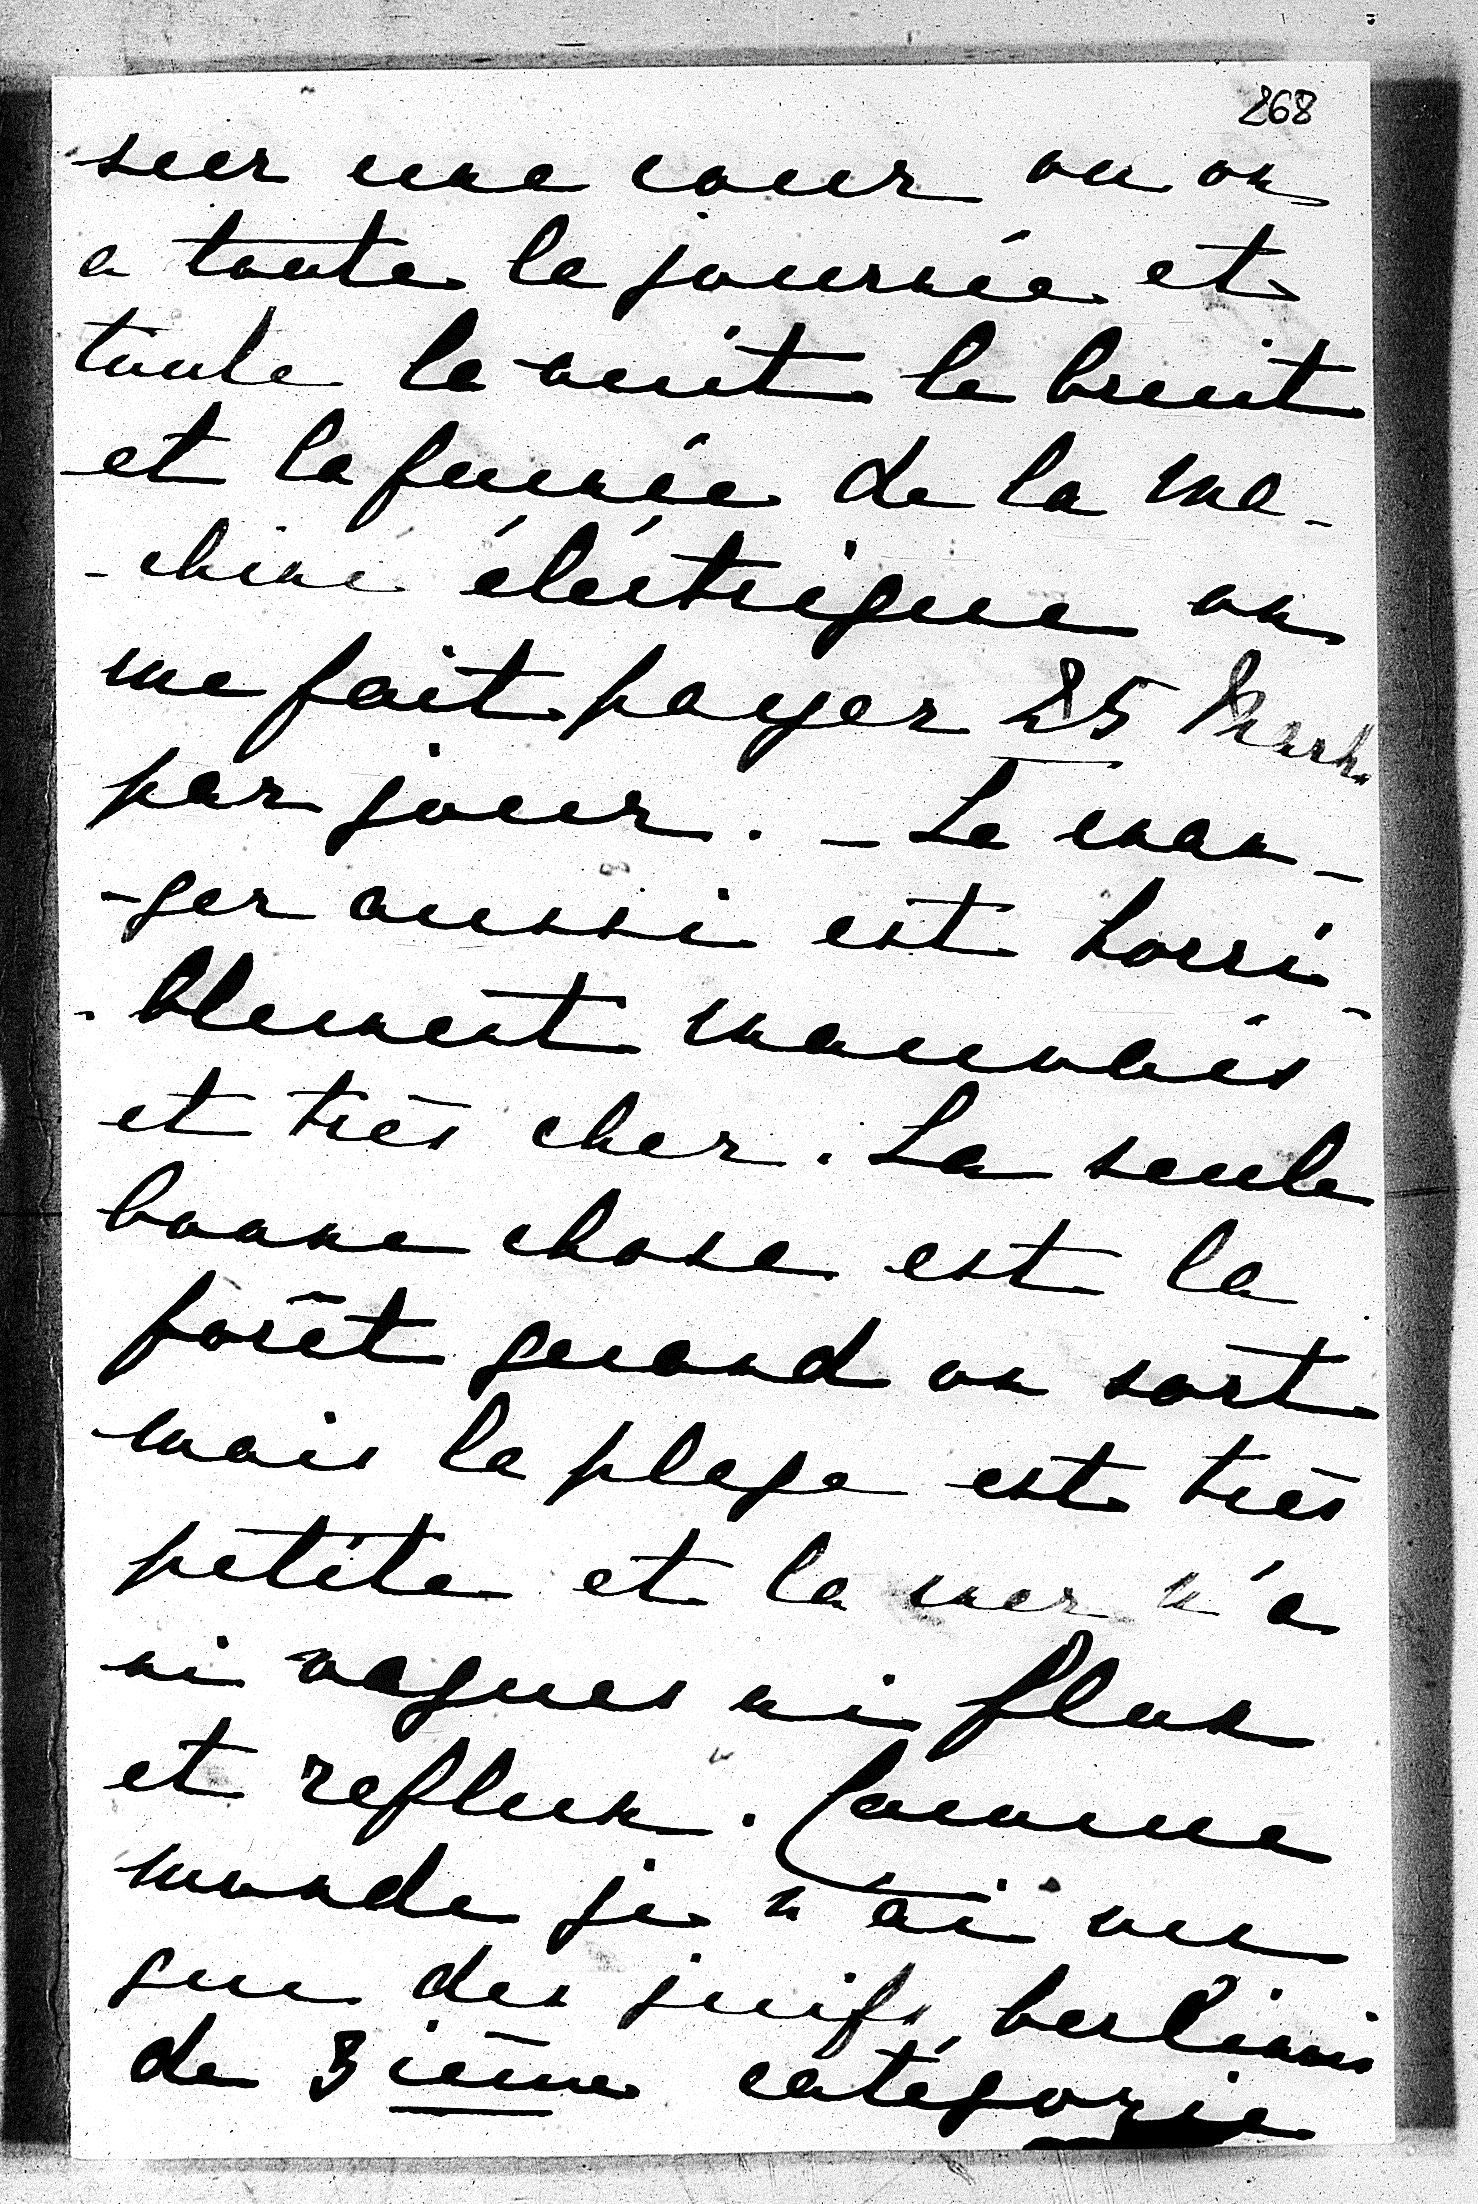 268
sur une cour ou on
a toute la journée et
toute la nuit le bruit
et la fumée de la ma-
-chine électrique on
me fait payer 25 Mark
par jour. - Le man-
-ger aussi est horri-
-blement mauvais
et très cher. La seule
bonne chose est la
forêt quand on sort
mais la plage est très
petite et la mer n'a
ni vagues ni flux
et reflux. Comme
monde je n'ai vu
que des juifs berlinois
de 3ième catégorie